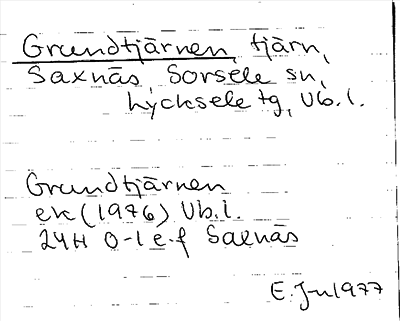 Grundtjärnen, tjärn,
Saxnäs, Sorsele sn,
Lycksele tg, Vb. l.
Grundtjärnen
ek (1976) Vb. l.
24H 0-1 e-f Saxnäs
E. Jn 1977